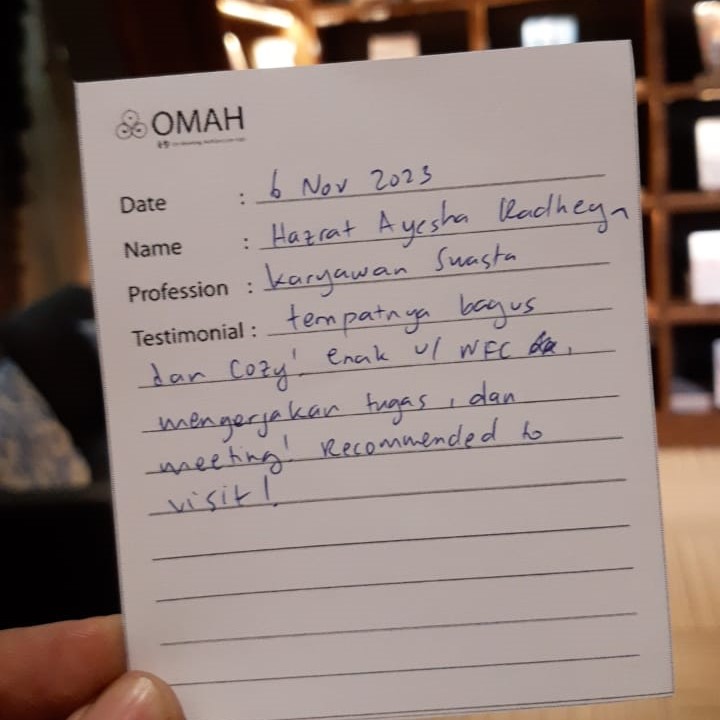 OMAH
Date : 6 Nov 2023
Name : Hazrat Ayesha Radheyn
Profession : Karyawan Swasta
Testimonial : tempatnya bagus
dan Cozy! enak u/ WFC
mengerjakan tugas, dan
meeting! Recommended to
visit!